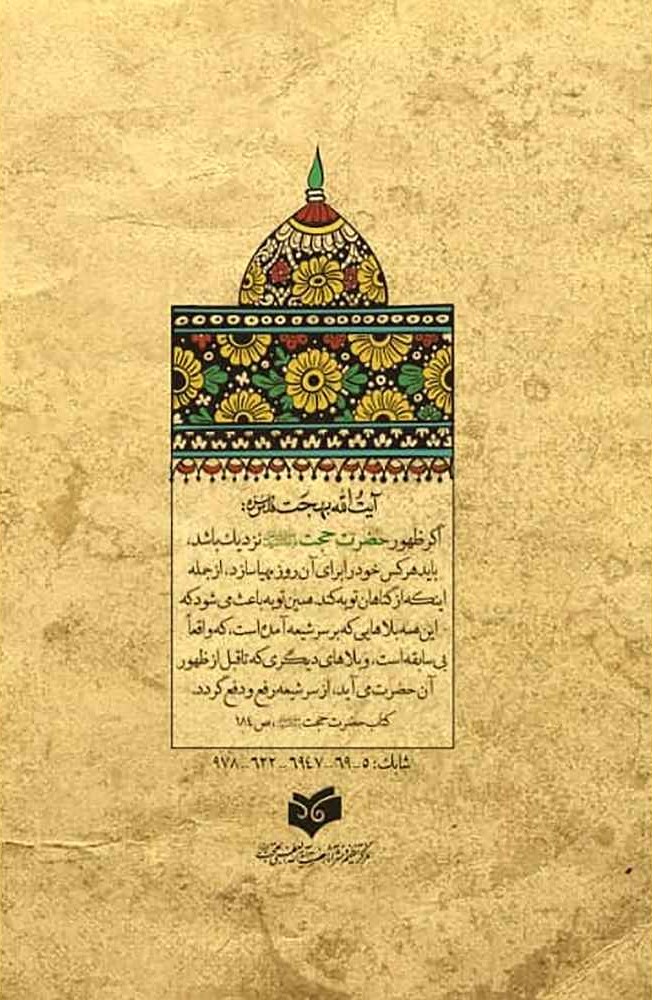 آیت‌الله بهجت قدس‌سره:
اگر ظهور حضرت حجت نزدیک باشد،
باید هرکس خود را برای آن روز مهیا سازد، از جمله
اینکه از گناهان توبه کند. همین توبه باعث می‌شود که
این همه بلاهایی که بر سر شیعه آمده است، که واقعاً
بی‌سابقه است، و بلاهای دیگری که تا قبل از ظهور
آن حضرت می‌آید، از سر شیعه رفع و دفع گردد.
کتاب حضرت حجت، ص ۱۸۴
شابک: ۵-۶۹-۶۹۴۷-۶۲۲-۹۷۸
مرکز تنظیم و نشر آثار حضرت آیت‌الله العظمی بهجت